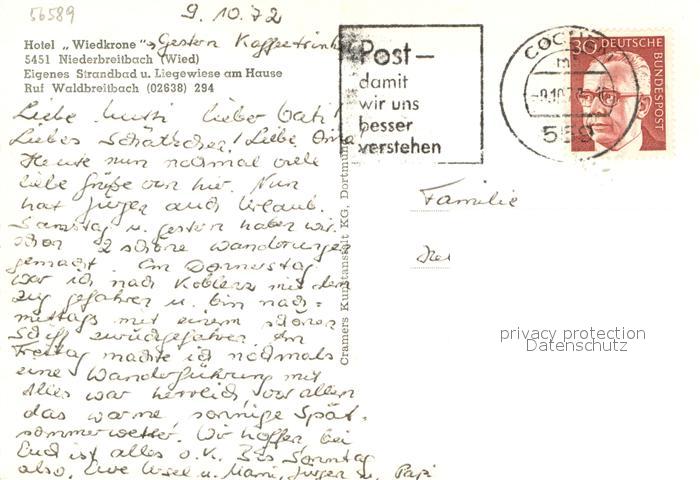 56589
9.10.72
Hotel „Wiedkrone" Gestern Kaffeetrinken
5451 Niederbreitbach (Wied)
Eigenes Strandbad u. Liegewiese am Hause
Ruf Waldbreitbach (02638) 294
Liebe Mutti lieber Vati!
Liebes Schätzchen! Liebe Oma
Heute nun nochmal viele
liebe Grüße von hier. Nun
hat Jürgen auch Urlaub.
Samstag u. gestern haben wir
schon 2 schöne Wanderungen
gemacht. Am Donnerstag
war ich nach Koblenz mit dem
Zug gefahren u. bin nach=
mittags mit einem schönen
Schiff zurückgefahren. Am
Freitag machte ich nochmals
eine Wanderführung mit
Alles war herrlich, vor allem
das warme sonnige Spät-
sommerwetter. Wir hoffen bei
Euch ist alles o.K. Bis Sonntag
also, Eure Ursel u. Mami, Jürgen u. Papi
Cramers Kunstanstalt KG, Dortmund
Post—
damit
wir uns
besser
verstehen
COCHEM
-9.10.72
559
30 DEUTSCHE
BUNDESPOST
Familie
privacy protection
Datenschutz